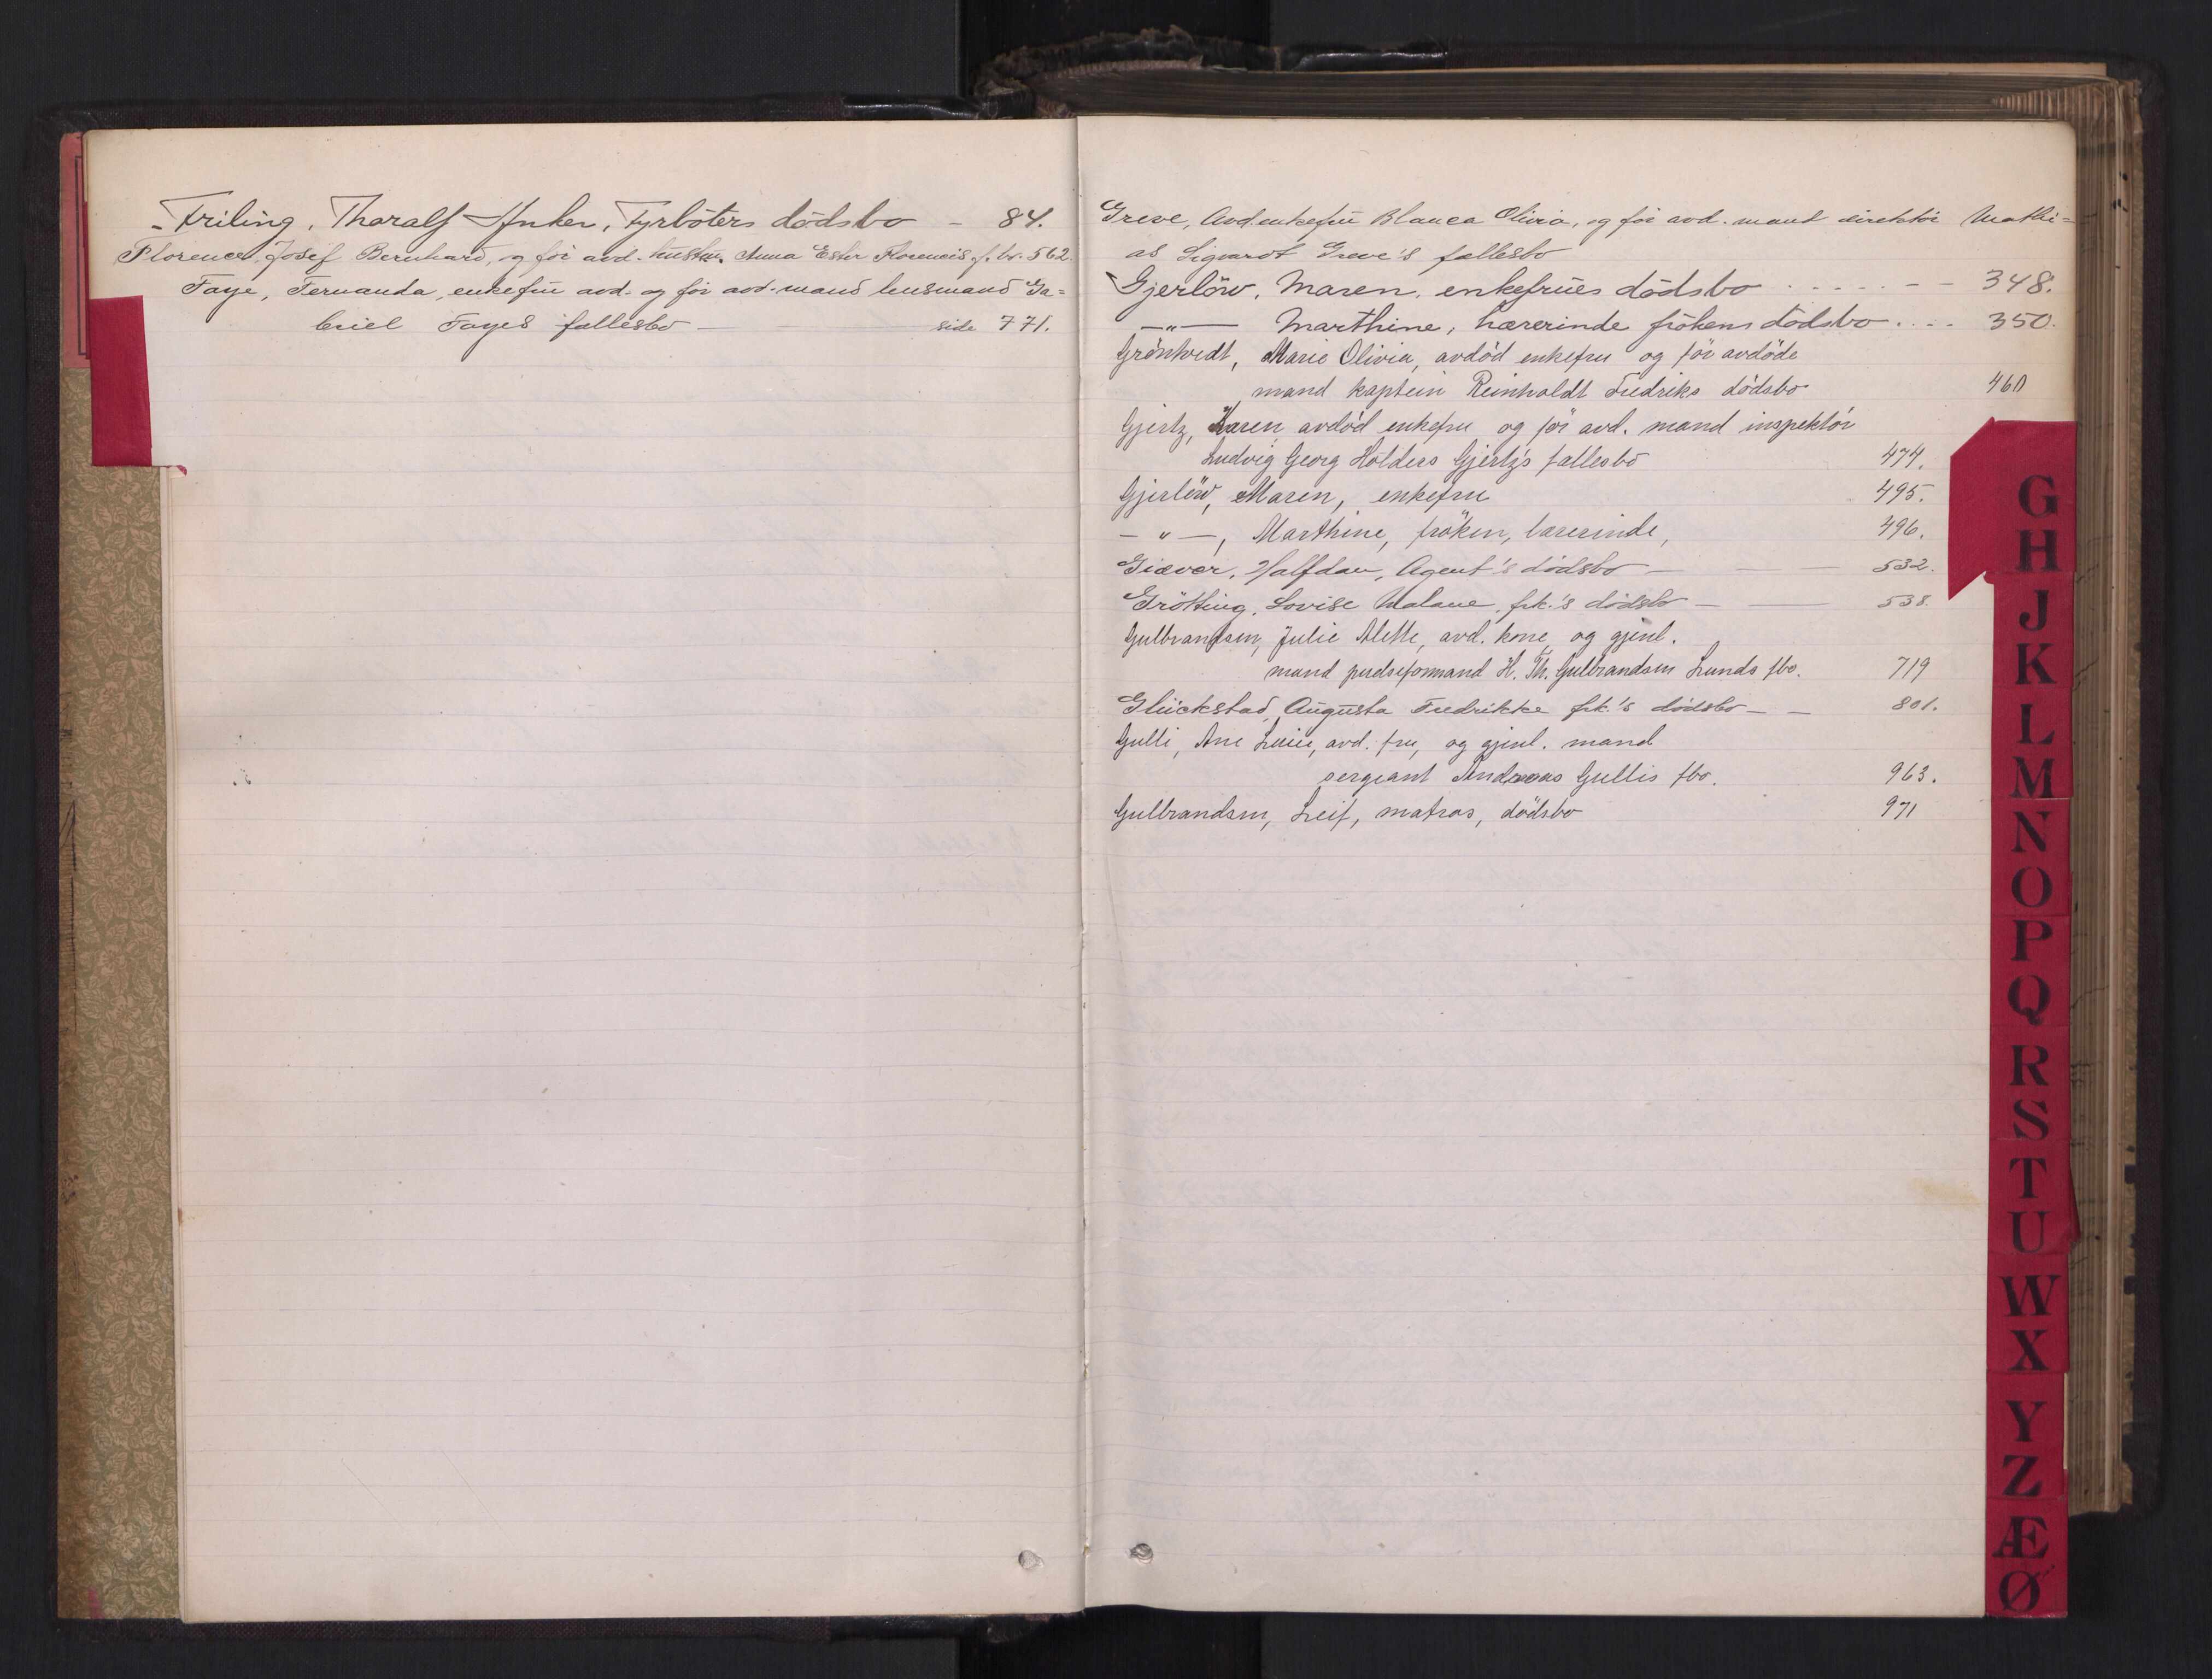 Friling, Tharalf Anker, Fyrböters dödsbo - 84.
Florence, Josef Bernhard, og för avd. hustru Anna Ester Florencis f. br. 562.
Faye, Fernanda, enkefru avd. og för avd. mand lensmand Ga=
briel Fayes fællesbo — side 771.
Greve, Avd. enkefru Blanca Olivia, og för avd. mand direktör Mathi=
as Sigvardt Greve's fællesbo
Gjerlöw, Maren, enkefrues dödsbo . . . . . - - 348.
—"— Marthine, Lærerinde frökens dödsbo . . . . 350.
Gröntvedt, Marie Olivia, avdöd enkefru ogför avdöde
mand kaptein Reinholdt Fredriks dödsbo 460
Gjertz, Karen avdöd enkefru og för avd. mand inspektör
Ludvig Georg Hölders Gjertz's fællesbo 474.
Gjerlöw, Maren, enkefru 495.
— " —, Marthine, fröken, lærerinde, 496.
Giæver, Halfdan, Agent's dödsbo — — 532.
Grötting, Lovise Malane, frk.'s dödsbo — — 538.
Gulbrandsen, Julie Alette, avd. kone, og gjenl.
mand pudseformand H. Th. Gulbrandsen Lunds fbo. 719
Glückstad, Augusta Fredrikke frk.'s dödsbo — — 801.
Gulli, Ane Luise, avd. fru, og gjenl. mand
sergeant Andreas Gullis fbo. 963.
Gulbrandsen, Leif, matros, dödsbo 971
G
H
J
K
L
M
N
O
P
Q
R
S
T
U
W
X
Y
Z
Æ
Ø